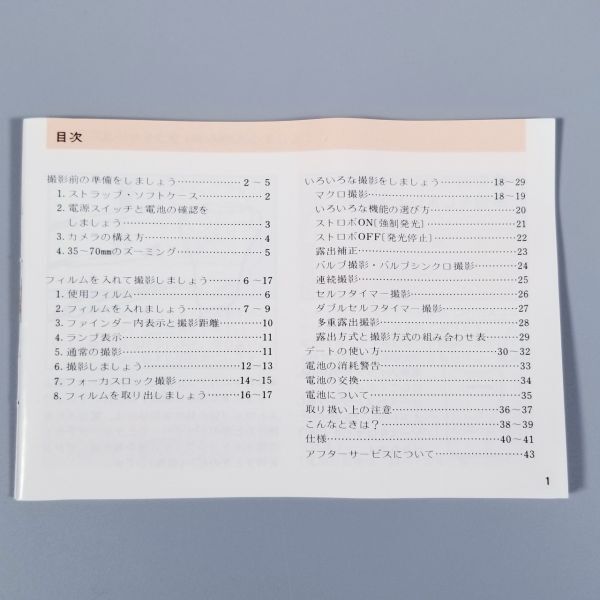 目次
撮影前の準備をしましょう………………2～5
1.ストラップ・ソフトケース………………2
2.電源スイッチと電池の確認を
しましょう………………3
3.カメラの構え方………………4
4.35-70mmのズーミング………………5
フィルムを入れて撮影しましょう………6～17
1.使用フィルム………………6
2.フィルムを入れましょう………………7～9
3.ファインダー内表示と撮影距離………10
4.ランプ表示………………11
5.通常の撮影………………11
6.撮影しましょう………………12～13
7.フォーカスロック撮影………………14～15
8.フィルムを取り出しましょう………16～17
いろいろな撮影をしましょう………18～29
マクロ撮影………………18～19
いろいろな機能の選び方………………20
ストロボON[強制発光]………………21
ストロボOFF[発光停止]………………22
露出補正………………23
バルブ撮影・バルブシンクロ撮影………24
連続撮影………………25
セルフタイマー撮影………………26
ダブルセルフタイマー撮影………………27
多重露出撮影………………28
露出方式と撮影方式の組み合わせ表……29
デートの使い方………………30～32
電池の消耗警告………………33
電池の交換………………34
電池について………………35
取り扱い上の注意………………36～37
こんなときは？………………38～39
仕様………………40～41
アフターサービスについて………………43
1